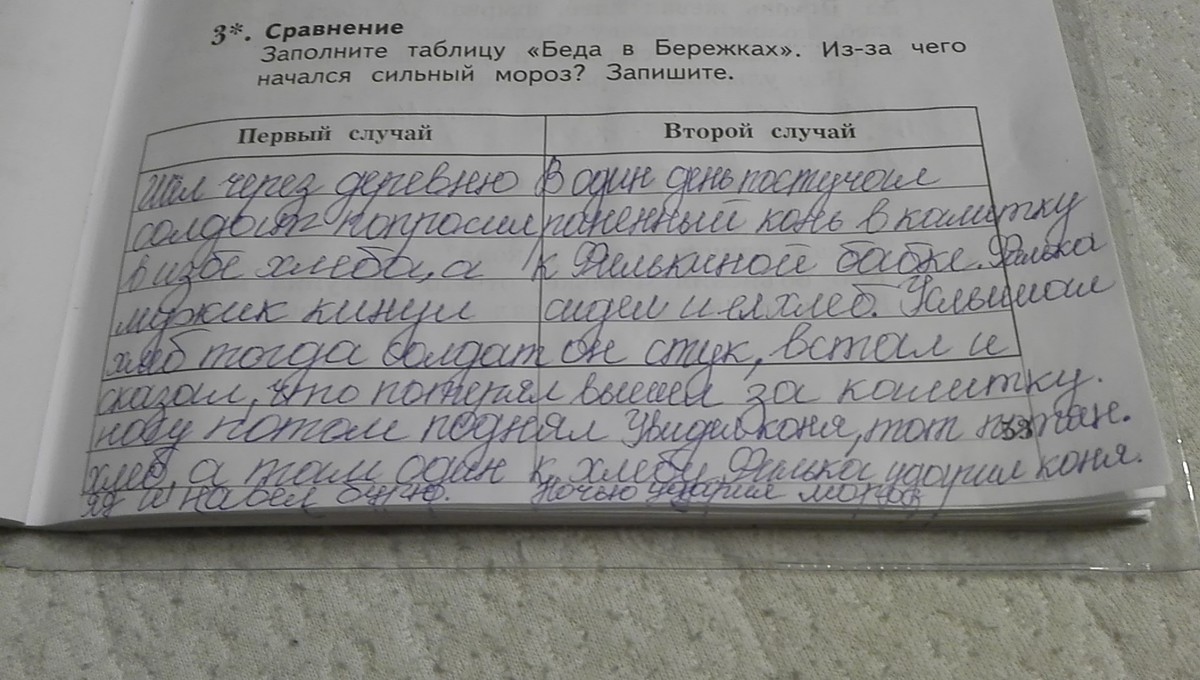 3*. Сравнение
Заполните таблицу «Беда в Бережках». Из-за чего
начался сильный мороз? Запишите.
Первый случай
Второй случай
Шёл через деревню
солдат попросил
в избе хлеба, а
мужик кинул
хлеб тогда солдат
сказал, что потерял
ногу потом поднял
хлеб, а там один
яд и навёл бурю.
В один день постучал
раненный конь в калитку
к Филькиной бабке. Филька
сидел и ел хлеб. Услышал
он стук, встал и
вышел за калитку.
Увидел коня, тот потян.
к хлебу. Филька ударил коня.
Ночью ударил мороз
39